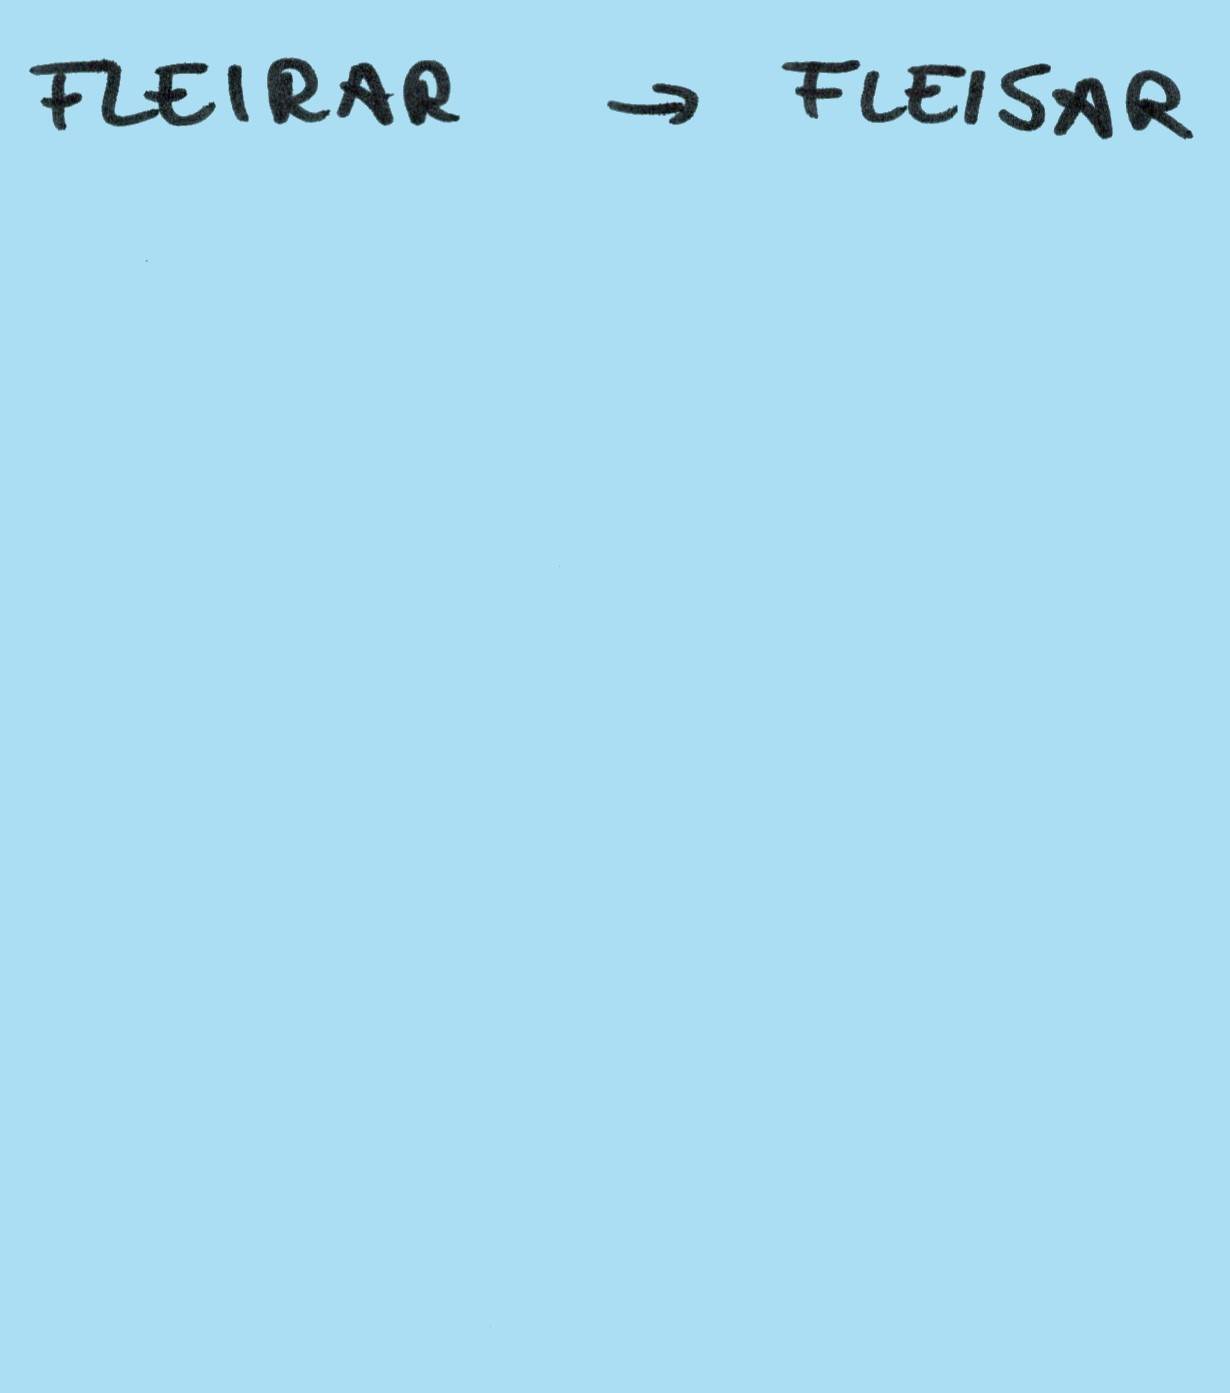 FLEIRAR → FLEISAR